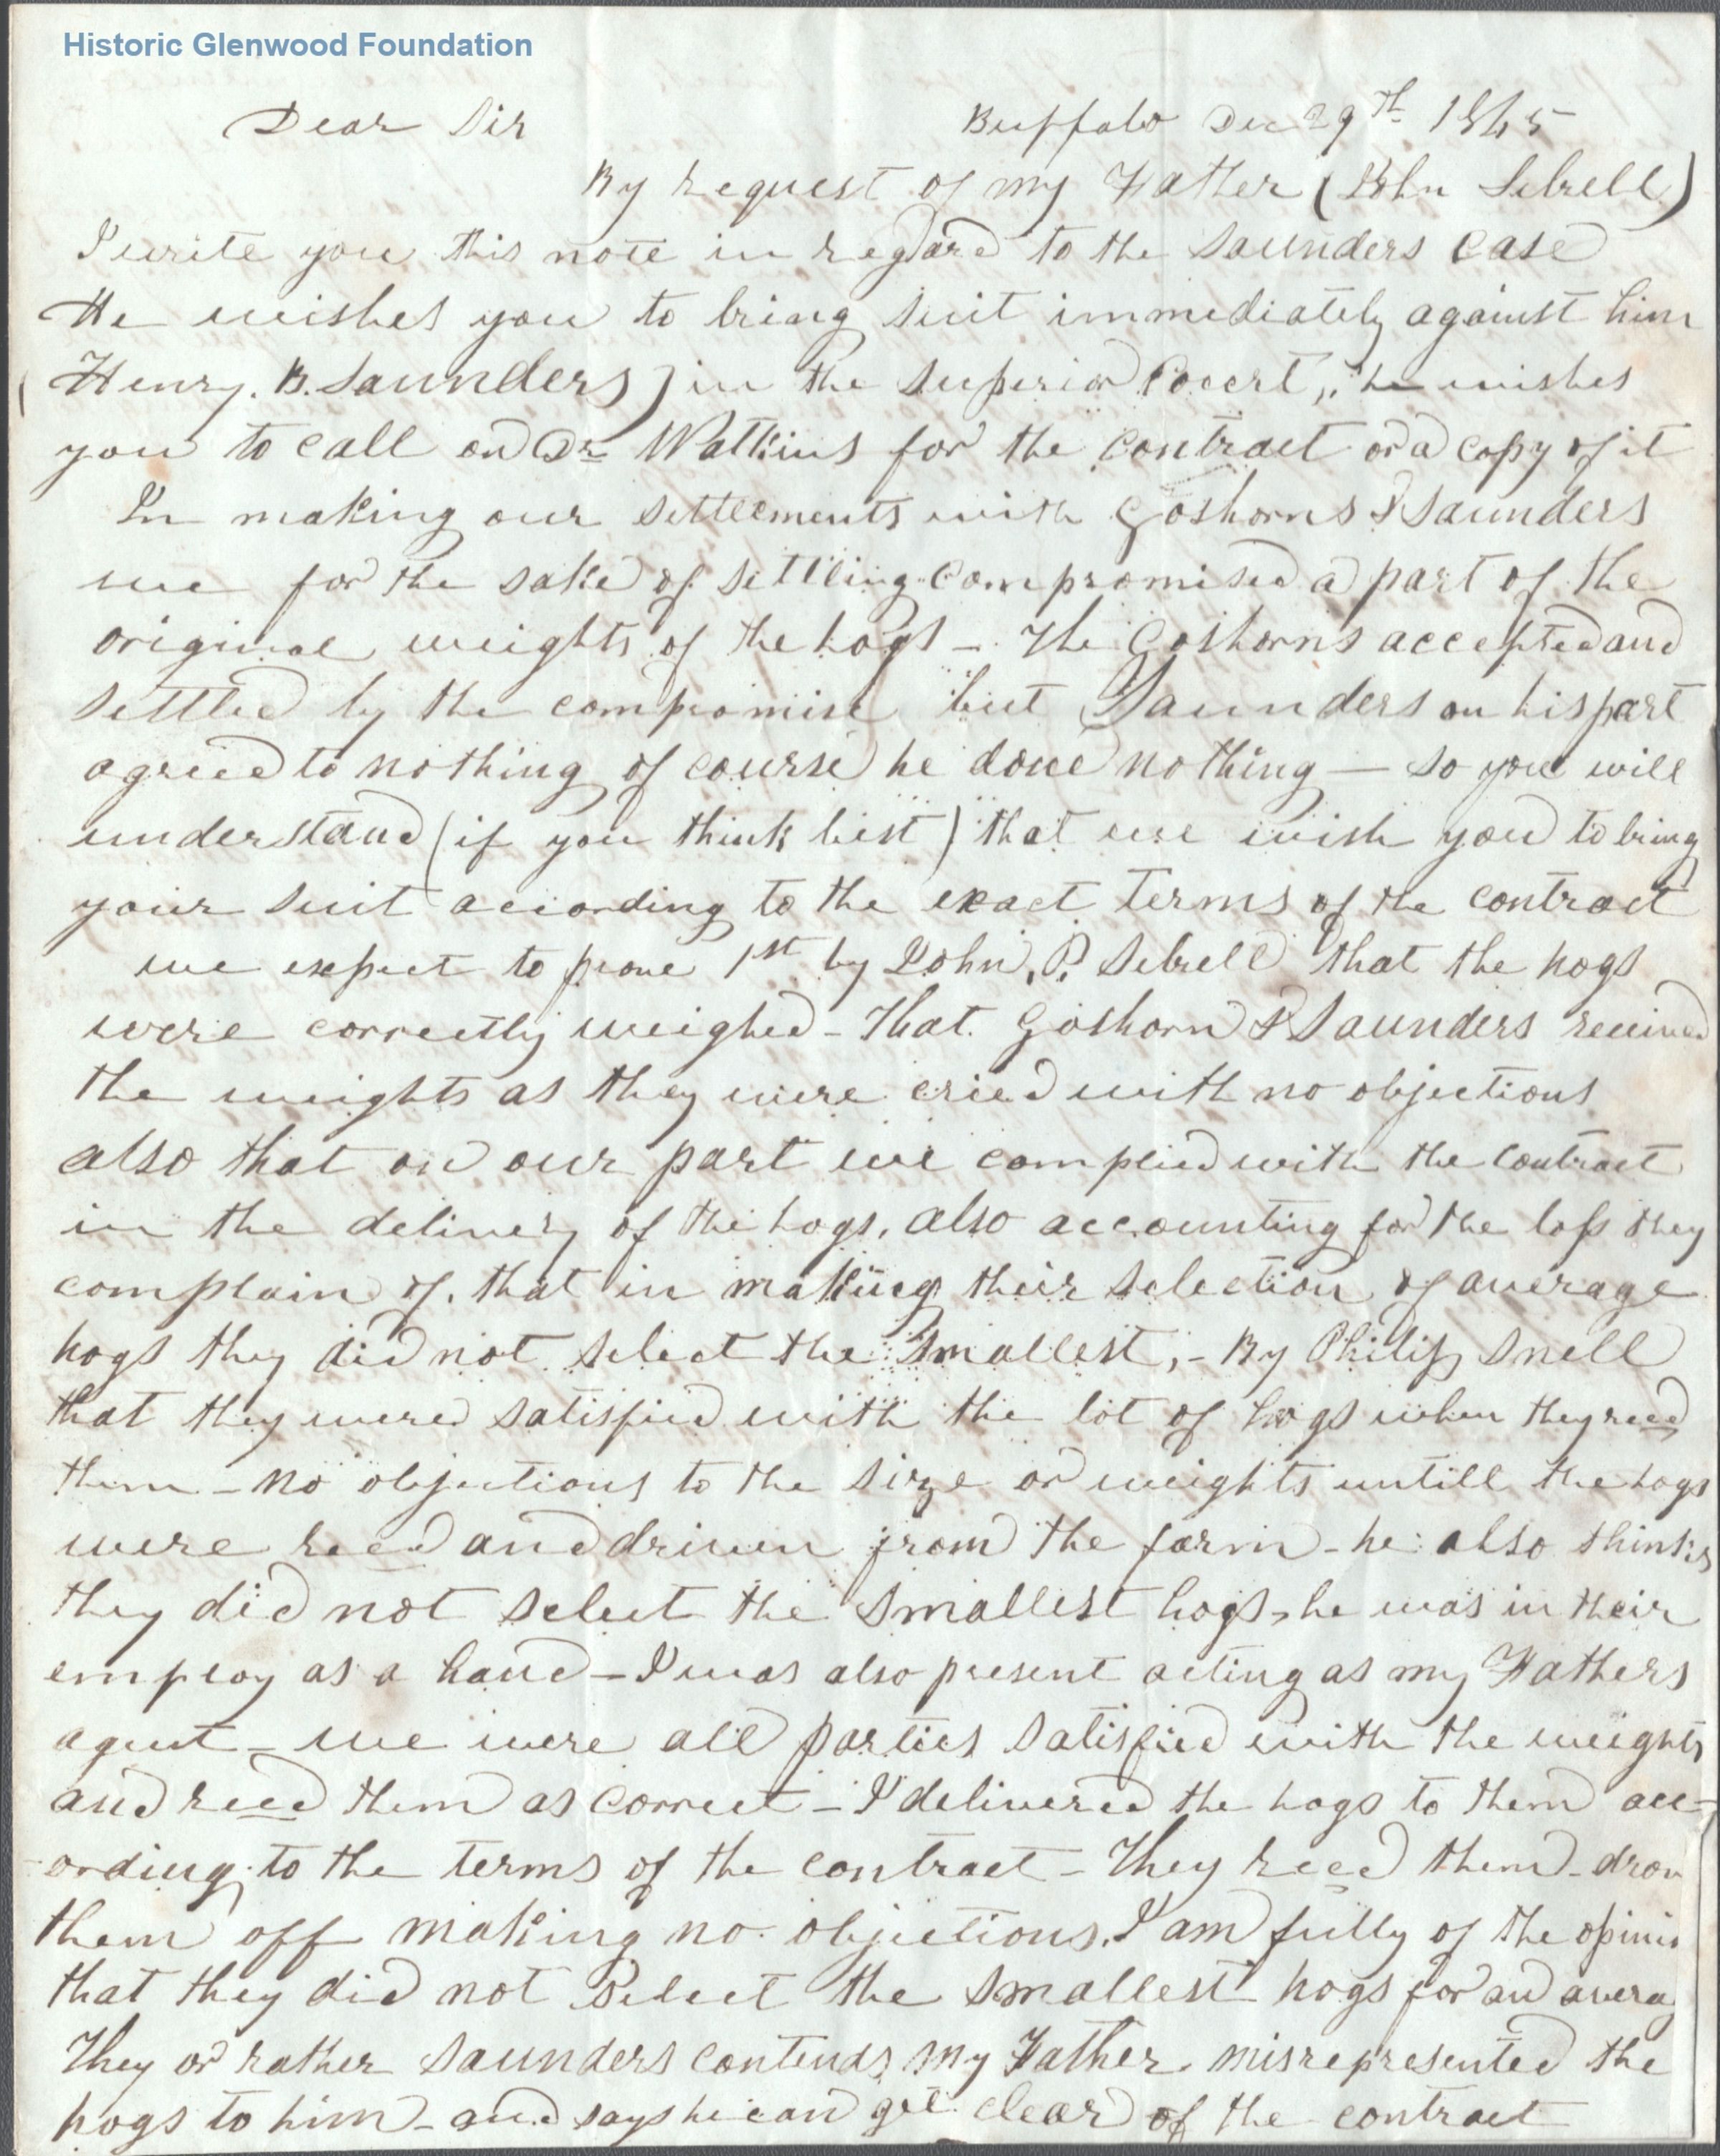 Historic Glenwood Foundation
Dear Sir Buffalo Dec 29th 1845
By request of my Father (John Sebrell)
I write you this note in regard to the Saunders case
He wishes you to bring suit immediately against him
(Henry. B. Saunders) in the Superior Court, he wishes
you to call on Dr Watkins for the contract or a copy of it
In making our settlements with Goshorns & Saunders
we for the sake of settling compromised a part of the
original weights of the hogs - The Goshorns accepted and
settled by the compromise but Saunders on his part
agreed to nothing of course he done nothing — so you will
understand (if you think best) that we wish you to bring
your suit according to the exact terms of the contract
we expect to prove 1st by John. P. Sebrell that the hogs
were correctly weighed - That Goshorn & Saunders received
the weights as they were cried with no objections
also that on our part we complied with the contract
in the delivery of the hogs, also accounting for the loss they
complain of, that in making their selection of average
hogs they did not select the smallest, - By Philip Snell
that they were satisfied with the lot of hogs when they recd
them - no objections to the size or weights untill the hogs
were recd and driven from the farm - he also thinks
they did not select the smallest hogs, he was in their
employ as a hand - I was also present acting as my Fathers
agent - we were all parties satisfied with the weights
and recd them as correct - I delivered the hogs to them acc-
ording to the terms of the contract - They recd them - drov
them off making no objections. I am fully of the opinio
that they did not select the smallest hogs for an averag
They or rather Saunders contends my Father misrepresented the
hogs to him - and says he can get clear of the contract